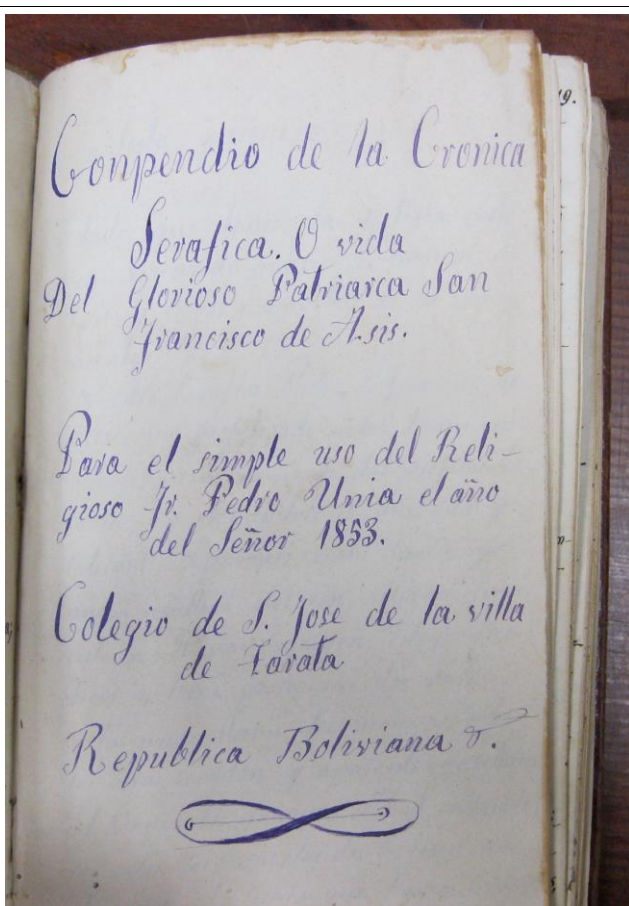 Conpendio de la Cronica
Serafica. O vida
Del Glorioso Patriarca San
Francisco de Asis.
Para el simple uso del Reli-
gioso Fr. Pedro Unia el año
del Señor 1853.
Colegio de S. Jose de la villa
de Tarata
Republica Boliviana
19.